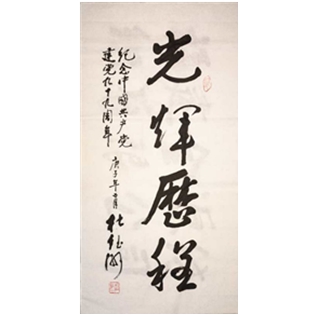 光輝歷程
紀念中國共产党
建党九十九周年
庚子年